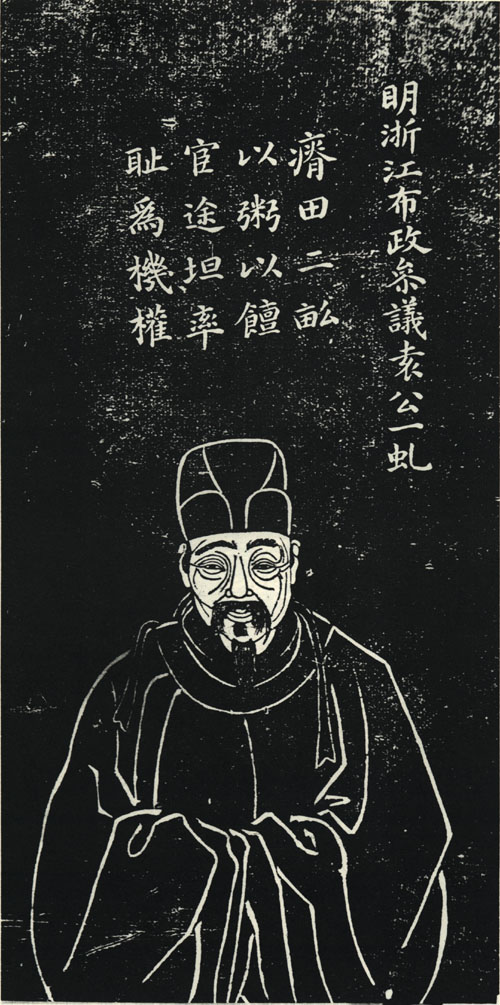 明浙江布政叅議袁公一虬
瘠田二畝
以粥以饘
宦途坦率
耻爲機權